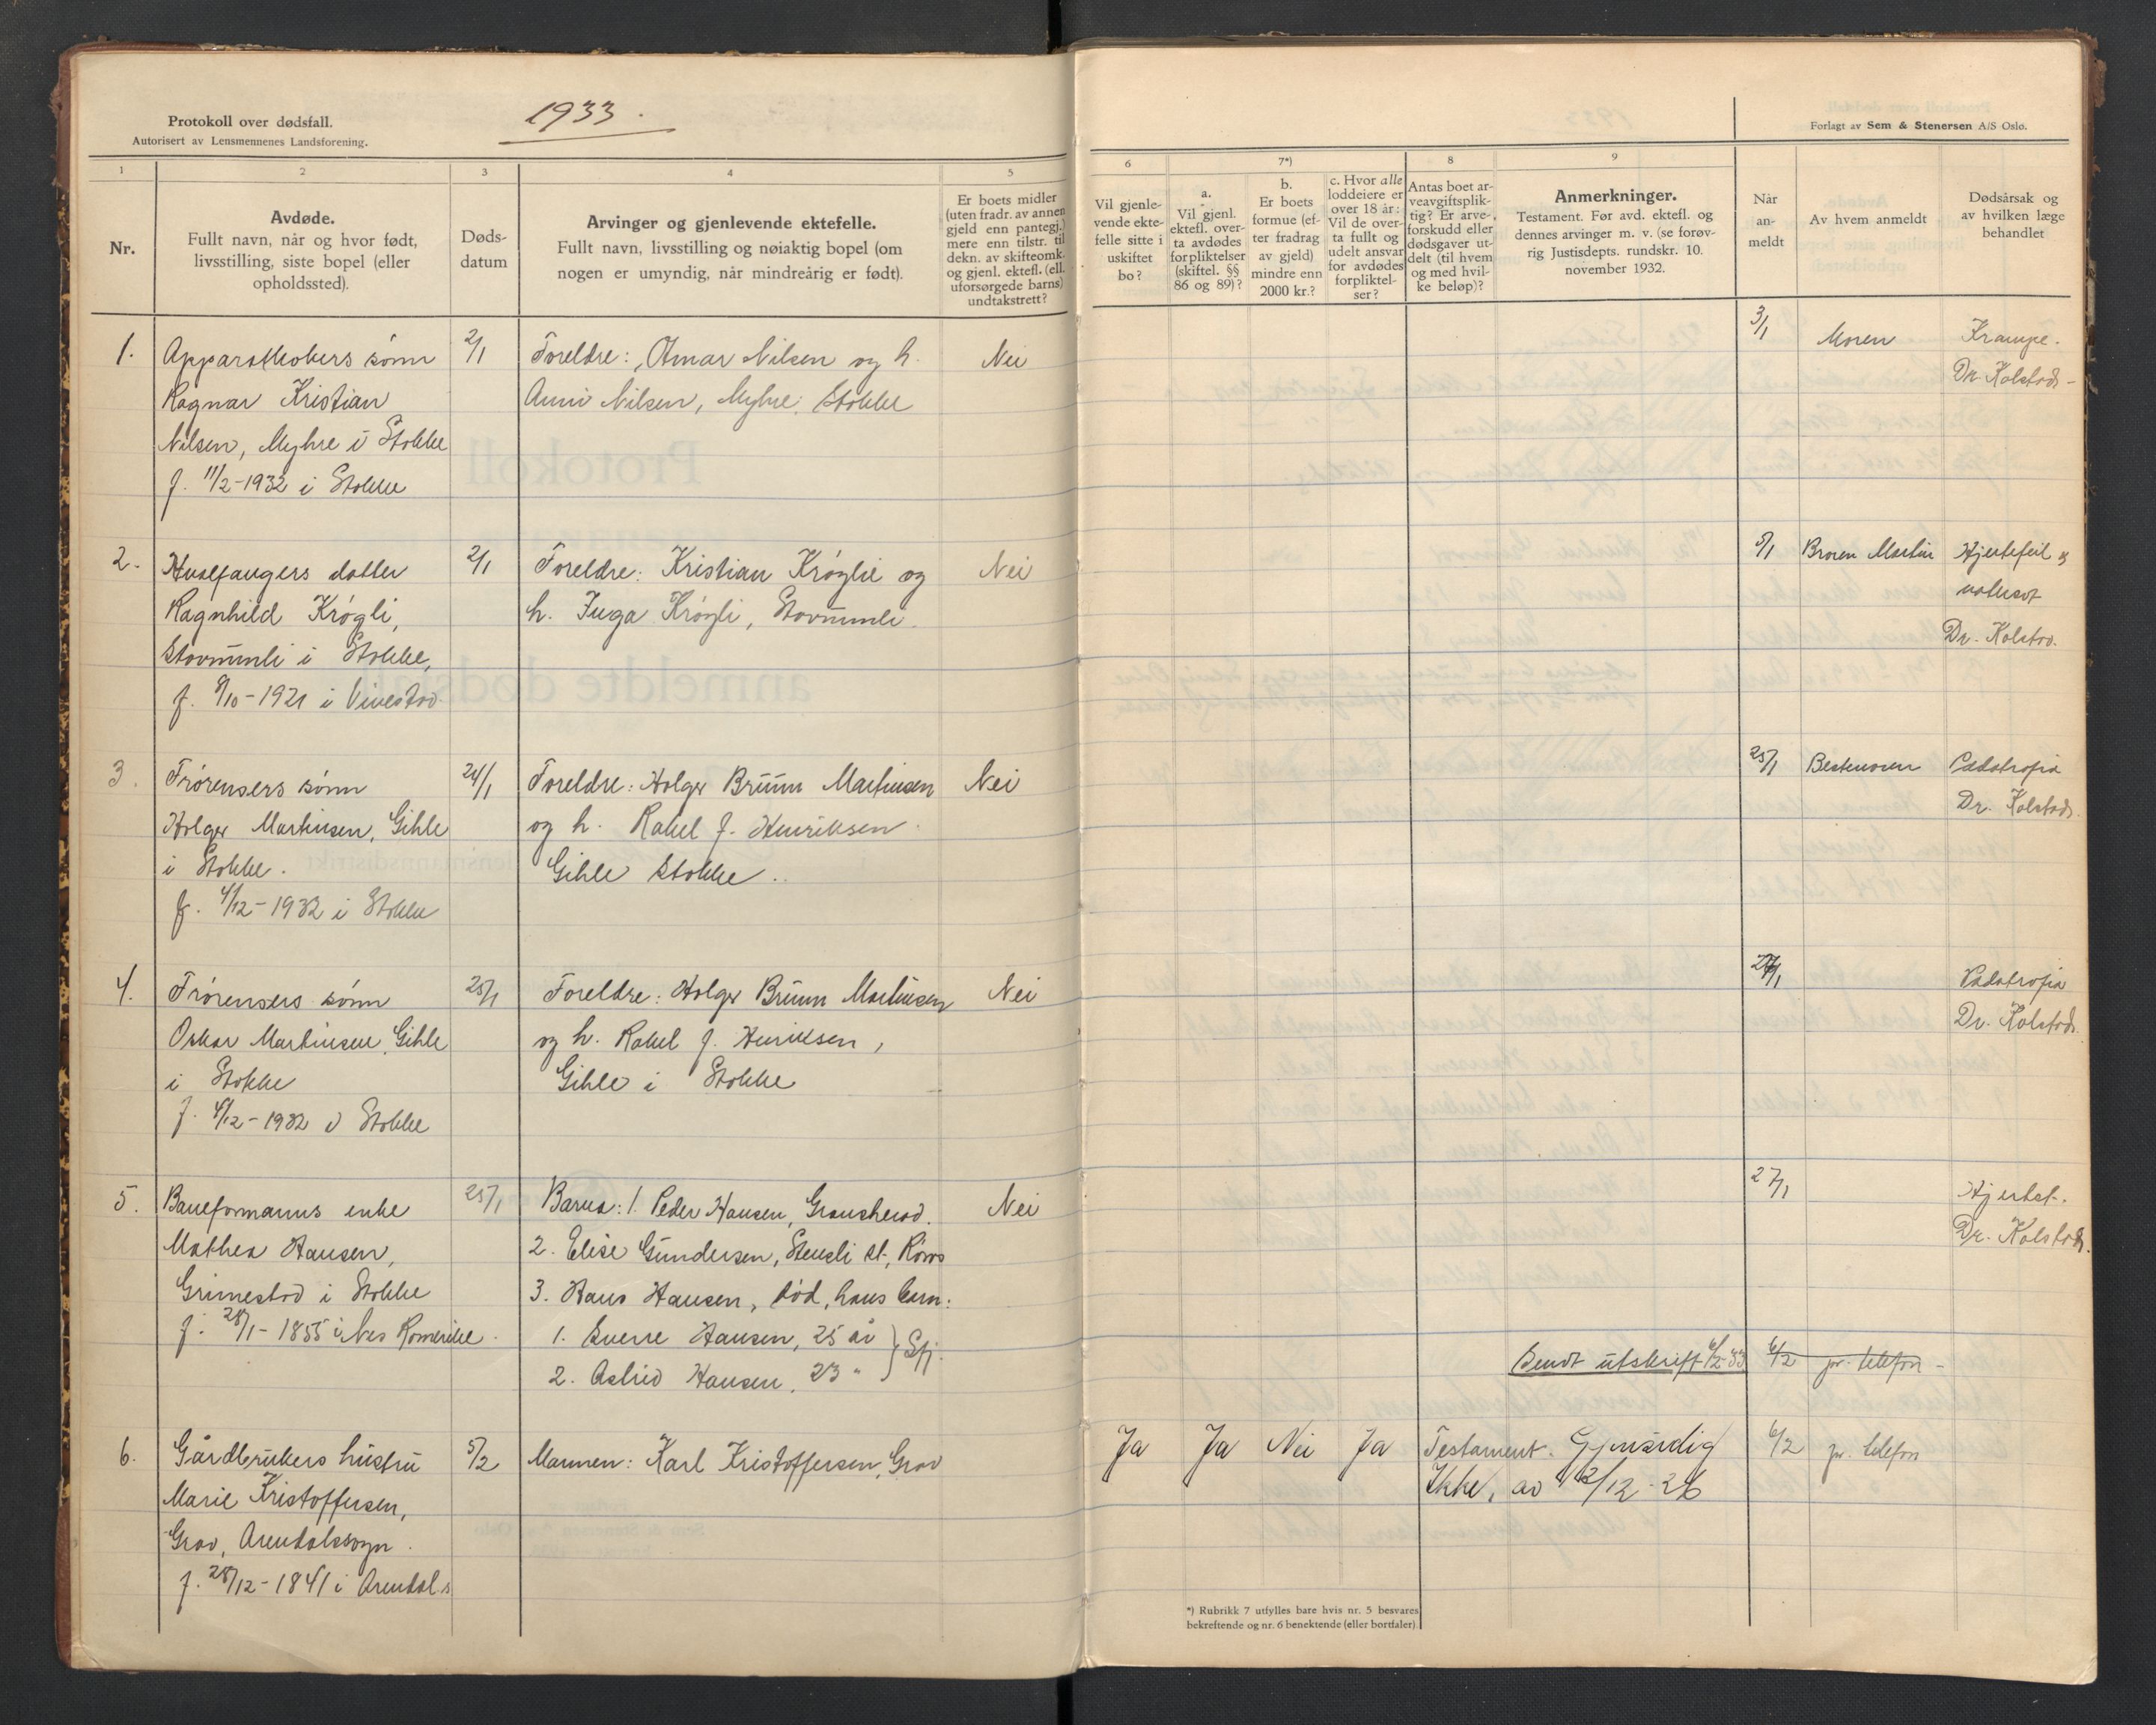 1933.
Protokoll over dødsfall.
Autorisert av Lensmennenes Landsforening.
Forlagt av Sem & Stenersen A/S Oslo.
1
2
3
4
5
6
7*)
8
9
Nr.
Avdøde.
Fullt navn, når og hvor født,
livsstilling, siste bopel (eller
opholdssted).
Døds-
datum
Arvinger og gjenlevende ektefelle.
Fullt navn, livsstilling og nøiaktig bopel (om
nogen er umyndig, når mindreårig er født).
Er boets midler
(uten fradr. av annen
gjeld enn pantegj.)
mere enn tilstr. til
dekn. av skifteomk.
og gjenl. ektefl. (ell.
uforsørgede barns)
undtakstrett?
Vil gjenle-
vende ekte-
felle sitte i
uskiftet
bo?
a.
Vil gjenl.
ektefl. over-
ta avdødes
forpliktelser
(skiftel. §§
86 og 89)?
b.
Er boets
formue (ef-
ter fradrag
av gjeld)
mindre enn
2000 kr.?
c. Hvor alle
loddeiere er
over 18 år:
Vil de over-
ta fullt og
udelt ansvar
for avdødes
forpliktel-
ser?
Antas boet ar-
veavgiftsplik-
tig? Er arve-
forskudd eller
dødsgaver ut-
delt (til hvem
og med hvil-
ke beløp)?
Anmerkninger.
Testament. Før avd. ektefl. og
dennes arvinger m. v. (se forøv-
rig Justisdepts. rundskr. 10.
november 1932.
Når
an-
meldt
Av hvem anmeldt
Dødsårsak og
av hvilken læge
behandlet
1.
sønn
Ragnar Kristian
Nilsen, Myhre i Stokke
f. 11/2-1932 i Stokke
2/1
Foreldre: Otmar Nilsen og h.
Nilsen, Myhre, Stokke
Nei
3/1
Moren
Krampe.
Dr. Kolstad-
2.
Hvalfangers datter
Ragnhild Krøgli,
i Stokke,
f. 8/10-1921 i Vivestad
2/1
Foreldre: Kristian Krøglie og
h. Inga Krøgli,
Nei
5/1
Broren Martin
Hjertefeil og
vatersot
Dr. Kolstad.
3.
Frørensers sønn
Holger Martinsen, Gihle
i Stokke.
f. 4/12-1932 i Stokke
24/1
Foreldre: Holger Bruun Martinsen
og h. Rakel f. Henriksen
Gihle Stokke.
Nei
25/1
Bestemoren
Pædatrofia
Dr. Kolstad.
4.
Frørensers sønn
Oskar Martinsen, Gihle
i Stokke
f. 4/12-1932 i Stokke
25/1
Foreldre: Holger Bruun Martinsen
og h. Rakel f. Henriksen,
Gihle i Stokke
Nei
27/1
Pædatrofia
Dr. Kolstad.
5.
Baneformanns enke
Mathea Hansen,
Grimestad i Stokke
f. 28/1-1855 i Nes Romerike.
25/1
Barna: 1. Peder Hansen, Gransherad.
2. Elise Gundersen, Stensli st., Røros
3. Hans Hansen, død, hans barn:
1. Sverre Hansen, 25 år
2. Astrid Hansen, 23 "
Sfj.
Nei
27/1
Hjertet.
Dr. Kolstad.
Sendt utskrift 6/2-33
6/2 pr. telefon-
6.
Gårdbrukers hustru
Marie Kristoffersen,
Grav, Arendalssogn.
f. 28/12-1841 i Arendal.s
5/2
Mannen: Karl Kristoffersen, Grav
Ja
Ja
Nei
Ja
Testament. Gjensidig
Ikke, av 12/12-26
6/2
pr. telefon
*) Rubrikk 7 utfylles bare hvis nr. 5 besvares
bekreftende og nr. 6 benektende (eller bortfaler)